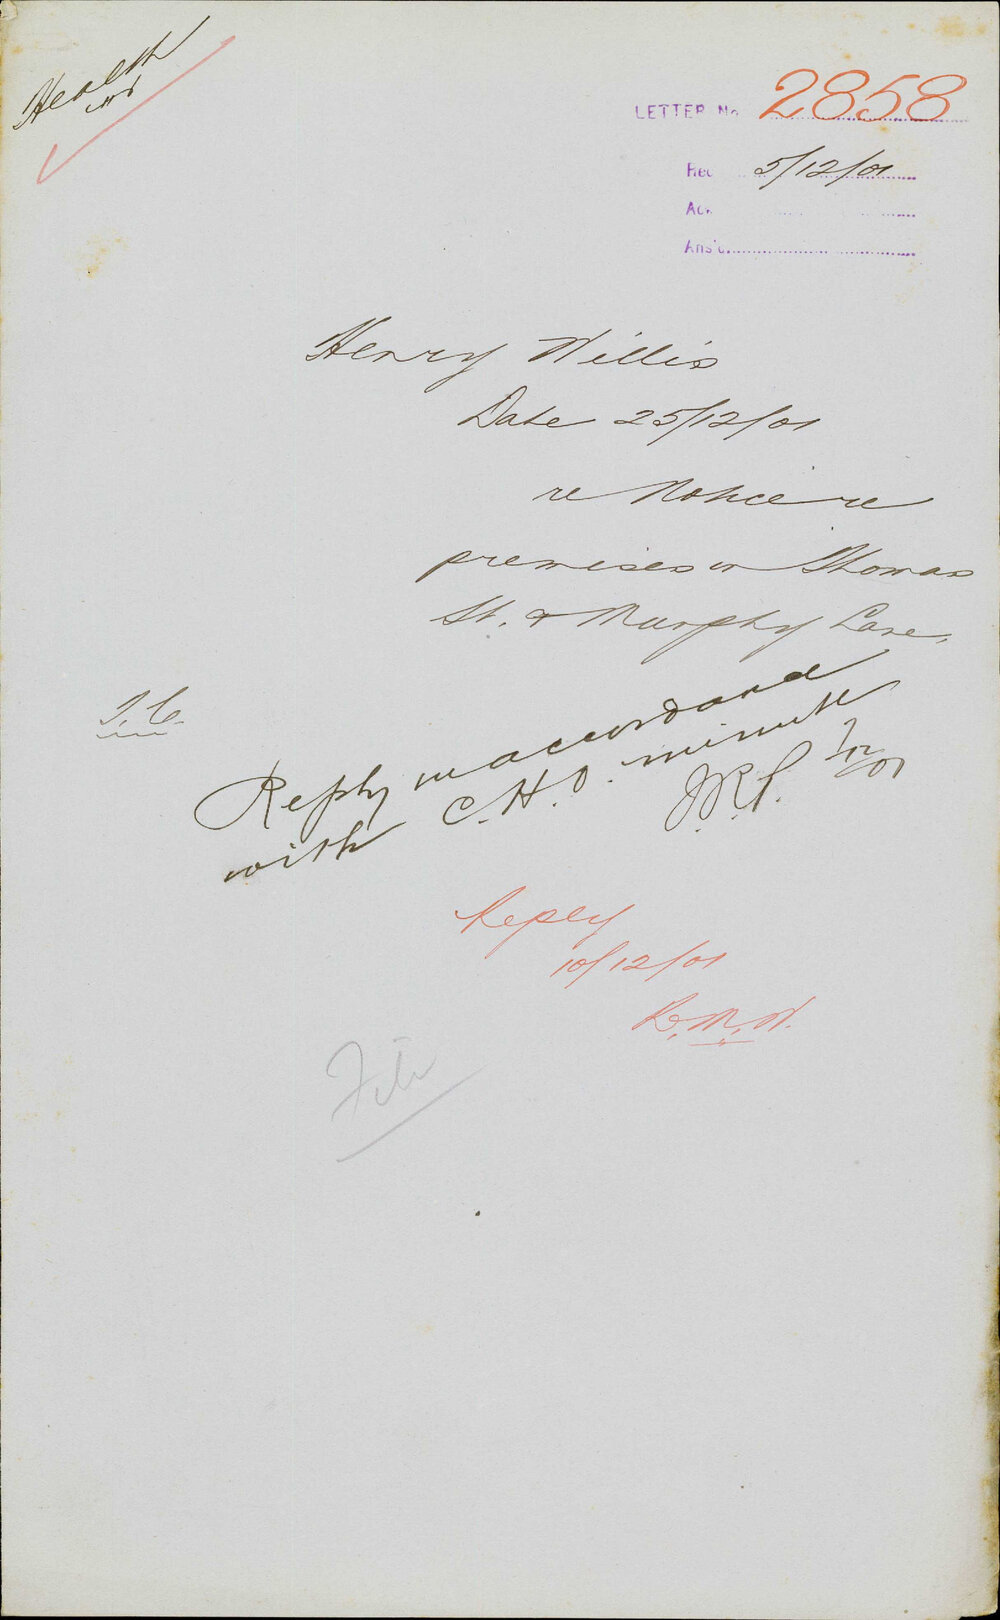 Health
LETTER No 2858
Rec 5/12/01
Ack
Ans'd
Henry Willis
Date 25/12/01
re Notice re
premises in Thomas
St. & Murphy Lane.
T.C.
Reply in accordance
with C.H.O. minute
J.R.P. 7/12/01
Reply
10/12/01
R.M.W.
File